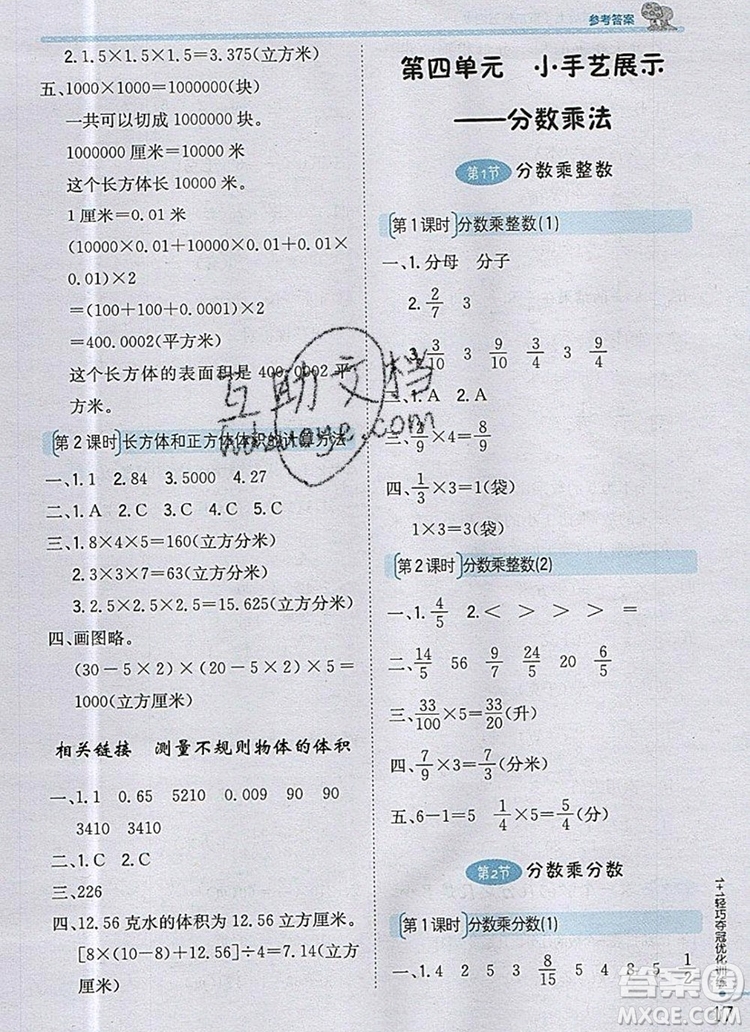 参考答案
2.1.5×1.5×1.5=3.375(立方米)
五、1000×1000=1000000(块)
一共可以切成 1000000 块。
1000000 厘米=10000 米
这个长方体长 10000 米
1 厘米=0.01 米
(10000×0.01+10000×0.01+0.01×
0.01)×2
=(100+100+0.0001)×2
=400.0002(平方米)
这个长方体的表面积是 400.0002 平
方米。
第 2 课时 长方体和正方体体积的计算方法
一、1.1 2.84 3.5000 4.27
二、1.A 2.C 3.C 4.C
三、1.8×4×5=160(立方分米)
2.3×3×7=63(立方分米)
3.2.5×2.5×2.5=15.625(立方分米)
四、画图略。
(30-5×2)×(20-5×2)×5=
1000(立方厘米)
相关链接 测量不规则物体的体积
一、1.1 0.65 5210 0.009 90 90
3410 3410
二、1.C 2.C
三、226
四、12.56 克水的体积为 12.56 立方厘米。
[8×(10-8)+12.56]÷1=28.56
(立方厘米)
第四单元 小手艺展示
——分数乘法
第1节 分数乘整数
第 1 课时 分数乘整数(1)
一、1.分母 分子
2.2/7 3
3.3/10 9/10 3/4 3 4/9
二、1.A 2.A
三、2/9×4=8/9
四、1/3×3=1(袋)
1×3=3(袋)
第 2 课时 分数乘整数(2)
一、1.4/5 2.< > > > =
二、14/5 56 9/7 24/5 20 6/5
三、33/100×5=33/20(升)
四、7/9×3=7/3(米)
五、6-1=5 1/4×5=5/4(分)
第2节 分数乘分数
第 1 课时 分数乘分数(1)
一、1.4 2 5 3 8/15 5 8 5 2 1/2
1+1轻巧夺冠优化训练
17
互助文档
hdzuoye.com
答案圈
MXQE.COM